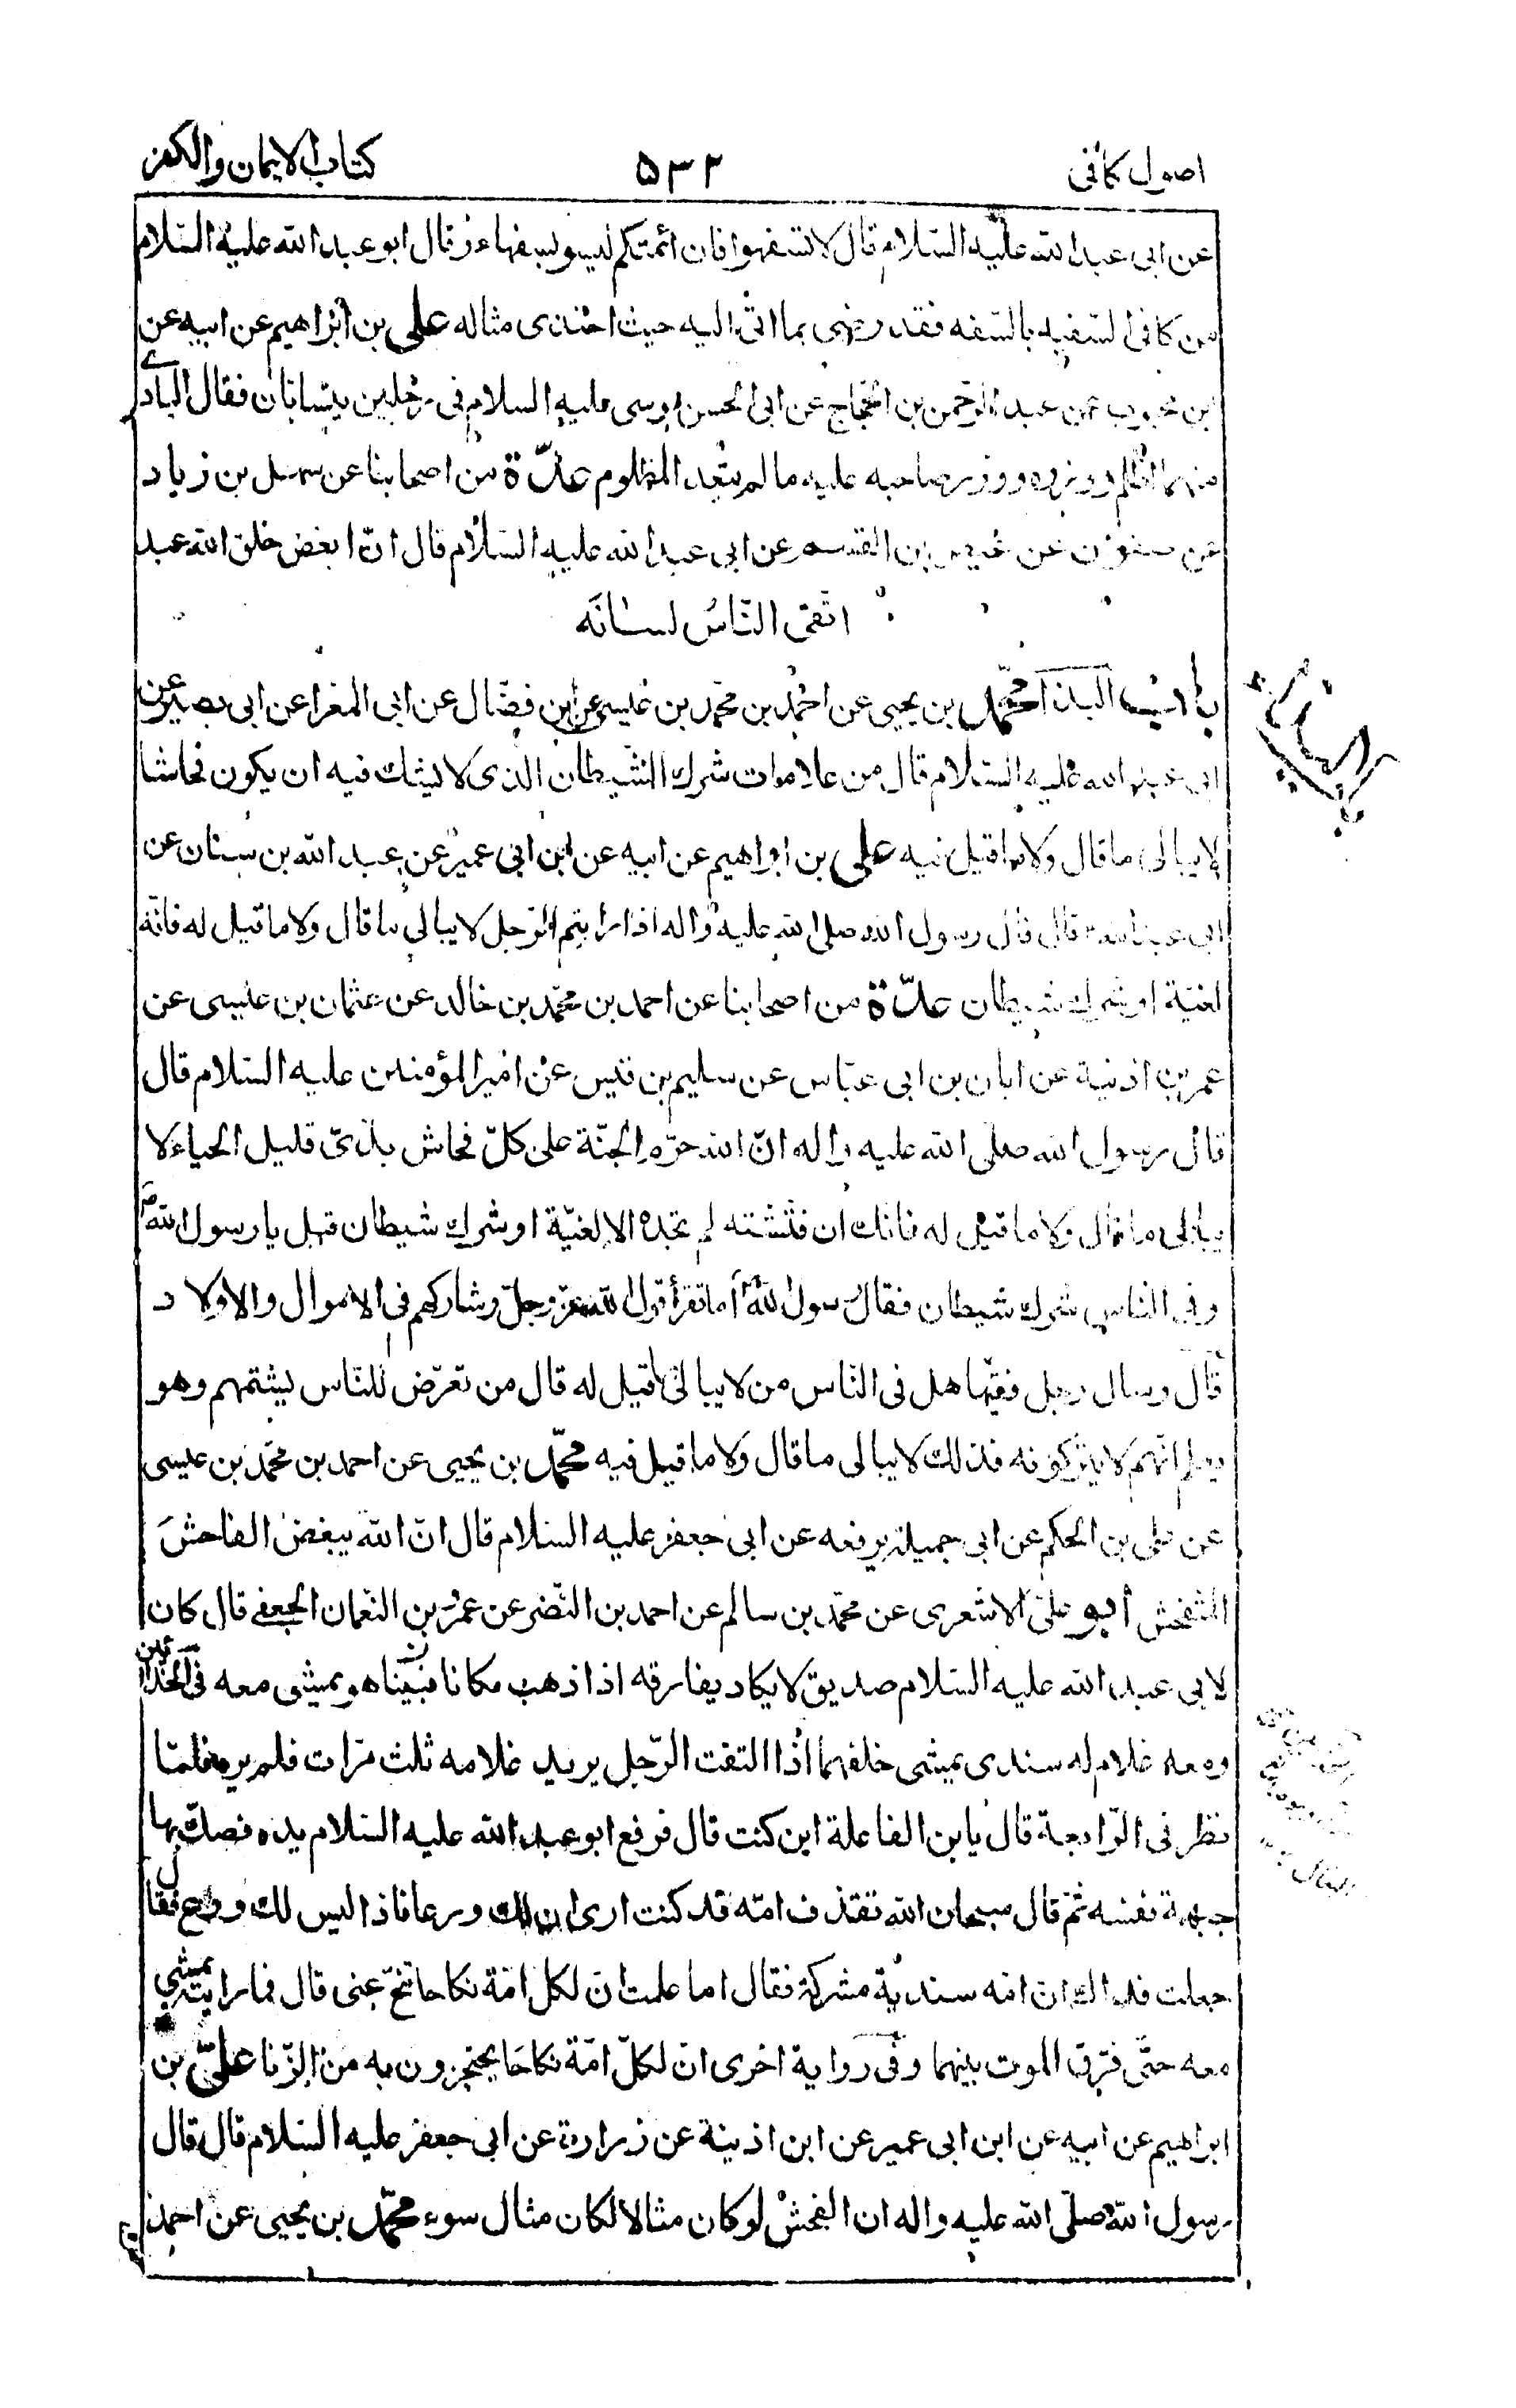 اصول كافى ۵۳۲ كتاب الايمان والكفر
عن ابى عبد الله عليه السّلام قال لا تسفهوا فان ائمتكم ليسو بسفهاء و قال ابو عبد الله عليه السّلام
من كافى السّفيه بالسّفه فقد رضى بما اتى اليه حيث احتذى مثاله على بن ابراهيم عن ابيه عن
ابن محبوب عن عبد الرّحمن بن الحجّاج عن ابى الحسن موسى عليه السلام فى رجلين يتسابّان فقال البادى
منهما اظلم و وزره و وزر صاحبه عليه ما لم يتعد المظلوم عدّة من اصحابنا عن سهل بن زياد
عن صفوان عن عيص بن القسم عن ابى عبد الله عليه السّلام قال انّ ابغض خلق الله عبد
اتّقى النّاسُ لسانَه
باب البذا محمّد بن يحيى عن احمد بن محمّد بن عيسى عن ابن فضّال عن ابى المغرا عن ابى بصير عن
ابى عبد الله عليه السّلام قال من علامات شرك الشّيطان الذى لا يشك فيه ان يكون فحاشا
لا يبالى ما قال ولا ما قيل فيه على بن ابراهيم عن ابيه عن ابن ابى عمير عن عبد الله بن سنان عن
ابى عبد الله قال قال رسول الله صلى الله عليه واله اذا رايتم الرّجل لا يبالى ما قال ولا ما قيل له فانّه
لغيّة او شرك شيطان عدّة من اصحابنا عن احمد بن محمّد بن خالد عن عثمان بن عيسى عن
عمر بن اذينة عن ابان بن ابى عيّاش عن سليم بن قيس عن امير المؤمنين عليه السّلام قال
قال رسول الله صلّى الله عليه واله انّ الله حرّم الجنّة على كلّ فحاش بذىّ قليل الحياء لا
يبالى ما قال ولا ما قيل له فانك ان فتّشته لم تجده الا لغيّة او شرك شيطان قيل يا رسول الله
وفى الناس شرك شيطان فقال رسول الله اما تقرأ قول الله عزّ وجلّ وشاركهم فى الاموال والاولاد
قال وسال رجل فقيها هل فى النّاس من لا يبالى ما قيل له قال من تعرّض للنّاس يشتمهم وهو
يعلم انّهم لا يتركونه فذلك لا يبالى ما قال ولا ما قيل فيه محمّد بن يحيى عن احمد بن محمّد بن عيسى
عن على بن الحكم عن ابى جميلة يرفعه عن ابى جعفر عليه السّلام قال انّ الله يبغض الفاحشَ
المتفحش ابو علىّ الاشعرى عن محمّد بن سالم عن احمد بن النّضر عن عمرو بن النّعمان الجعفى قال كان
لابى عبد الله عليه السّلام صديق لا يكاد يفارقه اذا ذهب مكانا فبينا هو يمشى معه فى الحذّائين
ومعه غلام له سندى يمشى خلفهما اذا التفت الرّجل يريد غلامه ثلث مرّات فلم يره فلمّا
نظر فى الرّابعة قال يا بن الفاعلة اين كنت قال فرفع ابو عبد الله عليه السّلام يده فصكّ بها
جبهة نفسه ثمّ قال سبحان الله تقذف امّه قد كنت ارى ان لك ورعا فاذا ليس لك ورع فقال
جعلت فداك ان امّه سنديّة مشركة فقال اما علمت ان لكل امّة نكاحا تنحّ عنى قال فما رايته يمشي
معه حتّى فرّق الموت بينهما وفى رواية اخرى انّ لكلّ امّة نكاحًا يحتجزون به من الزّنا علىّ بن
ابراهيم عن ابيه عن ابن ابى عمير عن ابن اذينة عن زرارة عن ابى جعفر عليه السّلام قال قال
رسول الله صلّى الله عليه واله ان الفحشْ لو كان مثالا لكان مثال سوء محمّد بن يحيى عن احمد